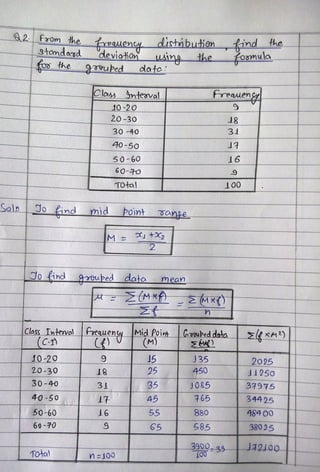 Q.2 From the frequency distribution, find the
standard deviation using the formula
for the grouped data:
Class Interval Frequency
10-20 9
20-30 18
30-40 31
40-50 17
50-60 16
60-70 9
Total 100
Soln To find mid point range
M = x₁ + x₂ / 2
To find grouped data mean
μ = Σ(M×f) / Σf = Σ(M×f) / n
Class Interval (C.I) Frequency (f) Mid Poin (M) Grouped data Σ(f×M²)
10-20 9 15 135 2025
20-30 18 25 450 11250
30-40 31 35 1085 37975
40-50 17 45 765 34425
50-60 16 55 880 48400
60-70 9 65 585 38025
Total n=100 3900/100 = 39 172100